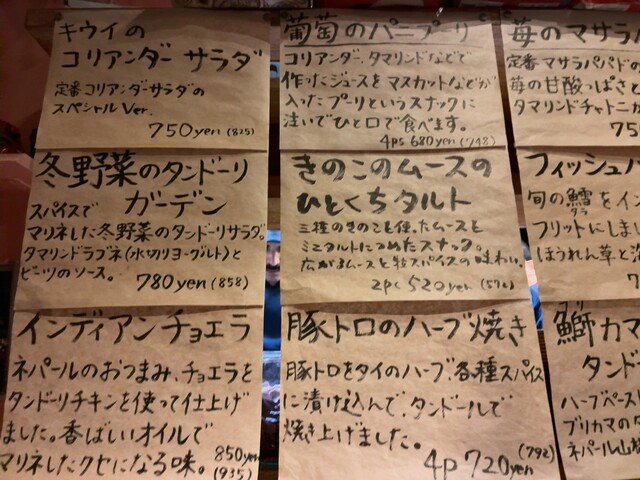 キウイの
コリアンダー サラダ
定番コリアンダーサラダの
スペシャル Ver.
750yen (825)
冬野菜のタンドーリ
ガーデン
スパイスで
マリネした冬野菜のタンドーリサラダ。
タマリンドラブネ(水切りヨーグルト)と
ビーツのソース。
780yen (858)
インディアンチョエラ
ネパールのおつまみ、チョエラを
タンドーリチキンを使って仕上げ
ました。香ばしいオイルで
マリネしたクセになる味。
850yen
(935)
葡萄のパニプーリ
コリアンダー、タマリンドなどで
作ったジュースをマスカットなどが
入ったプーリというスナックに
注いでひと口で食べます。
4ps 680yen (748)
きのこのムースの
ひとくちタルト
三種のきのこを使ったムースを
ミニタルトにつめたスナック。
広がるムースと粒スパイスの味わい。
2pc 520yen (572)
豚トロのハーブ焼き
豚トロをタイのハーブ、各種スパイス
に漬け込んで、タンドールで
焼き上げました。
(792)
4p 720yen
苺のマサラパ
定番マサラパパドの
苺の甘酸っぱさと
タマリンドチャトニ
75
フィッシュパ
旬の鱈をイン
タラ
フリットにしま
ほうれん草と
7
ブリ
鰤カマ
タンド
ハーブペースト
ブリカマのタ
ネパール山椒